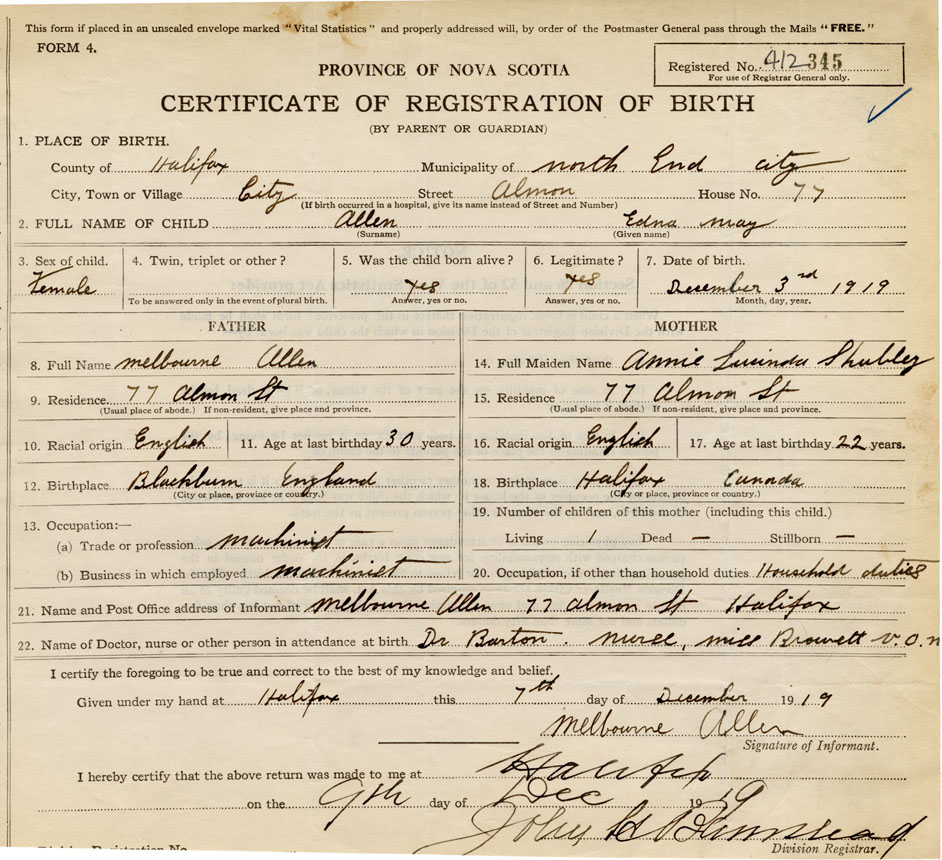 This form if placed in an unsealed envelope marked "Vital Statistics" and properly addressed will, by order of the Postmaster General pass through the Mails "FREE."
FORM 4.
Registered No. 412345
For use of Registrar General only.
PROVINCE OF NOVA SCOTIA
CERTIFICATE OF REGISTRATION OF BIRTH
(BY PARENT OR GUARDIAN)
1. PLACE OF BIRTH.
County of Halifax Municipality of north End city
City, Town or Village City Street Almon House No. 77
(If birth occurred in a hospital, give its name instead of Street and Number)
2. FULL NAME OF CHILD Allen Edna may
(Surname) (Given name)
3. Sex of child. 4. Twin, triplet or other? 5. Was the child born alive? 6. Legitimate? 7. Date of birth.
Female yes yes December 3rd 1919
To be answered only in the event of plural birth. Answer, yes or no. Answer, yes or no. Month, day, year.
FATHER MOTHER
8. Full Name melbourne Allen 14. Full Maiden Name Annie Lucinda
9. Residence 77 Almon St 15. Residence 77 Almon St
(Usual place of abode.) If non-resident, give place and province. (Usual place of abode.) If non-resident, give place and province.
10. Racial origin English 11. Age at last birthday 30 years. 16. Racial origin English 17. Age at last birthday 22 years.
12. Birthplace Blackburn England 18. Birthplace Halifax Canada
(City or place, province or country.) (City or place, province or country.)
13. Occupation:— 19. Number of children of this mother (including this child.)
(a) Trade or profession machinist Living 1 Dead — Stillborn —
(b) Business in which employed machinist 20. Occupation, if other than household duties Household duties
21. Name and Post Office address of Informant melbourne Allen 77 almon St Halifax
22. Name of Doctor, nurse or other person in attendance at birth Dr Barton. nurse, miss Browett v.o.n
I certify the foregoing to be true and correct to the best of my knowledge and belief.
Given under my hand at Halifax this 7th day of December 1919
Melbourne Allen
Signature of Informant.
I hereby certify that the above return was made to me at Halifax
on the 9th day of Dec 1919
John
Division Registrar.